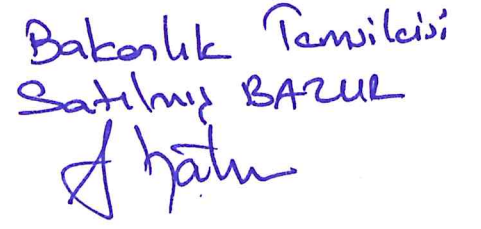 Bakanlık Temsilcisi
Satılmış BAZUR